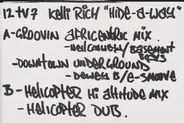 12-TV7 KELLI RICH "HIDE-A-WAY"
A-GROOVIN AFRICENTRIC MIX
-HELICAULTY/BASEMENT
BOYS
-DOWNTOWN UNDERGROUND
-DEWEY B/E-SMOOVE
B-HELICOPTER HI ATTITUDE MIX
-HELICOPTER DUB.